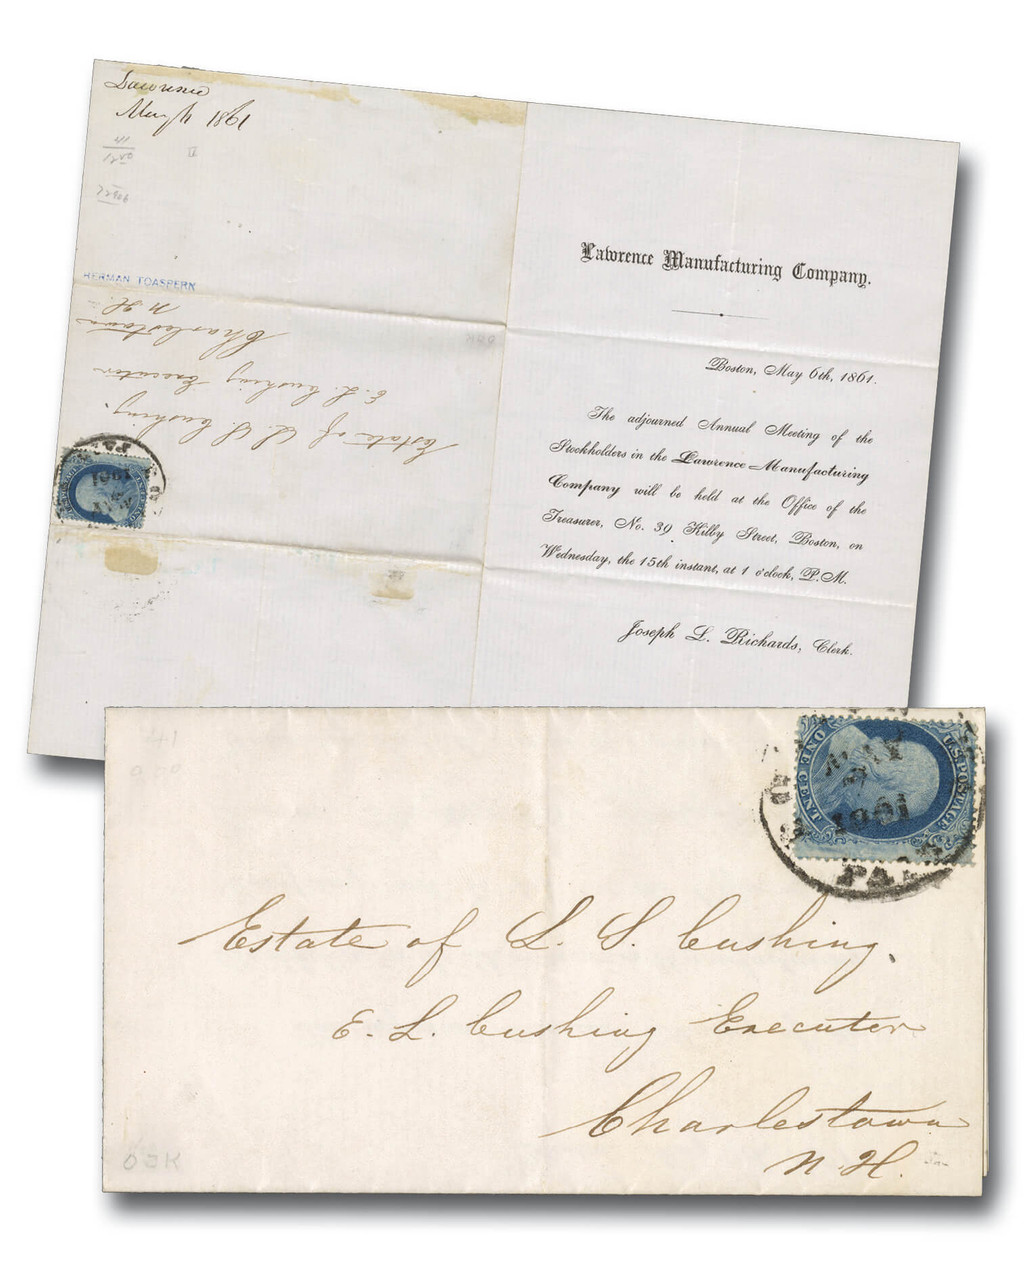 Lawrence
May 1861
41
HERMAN TOASPERN
Estate of L. S. Cushing.
E. L. Cushing Executor
Charlestown
N. H.
1861
Lawrence Manufacturing Company.
Boston, May 6th, 1861.
The adjourned Annual Meeting of the
Stockholders in the Lawrence Manufacturing
Company will be held at the Office of the
Treasurer, No. 39 Kilby Street, Boston, on
Wednesday, the 15th instant, at 1 o'clock, P.M.
Joseph L. Richards, Clerk.
41
U.S. POSTAGE
ONE CENT
MAY
1861
PAID
Estate of L. S. Cushing.
E. L. Cushing Executor
Charlestown
N. H.